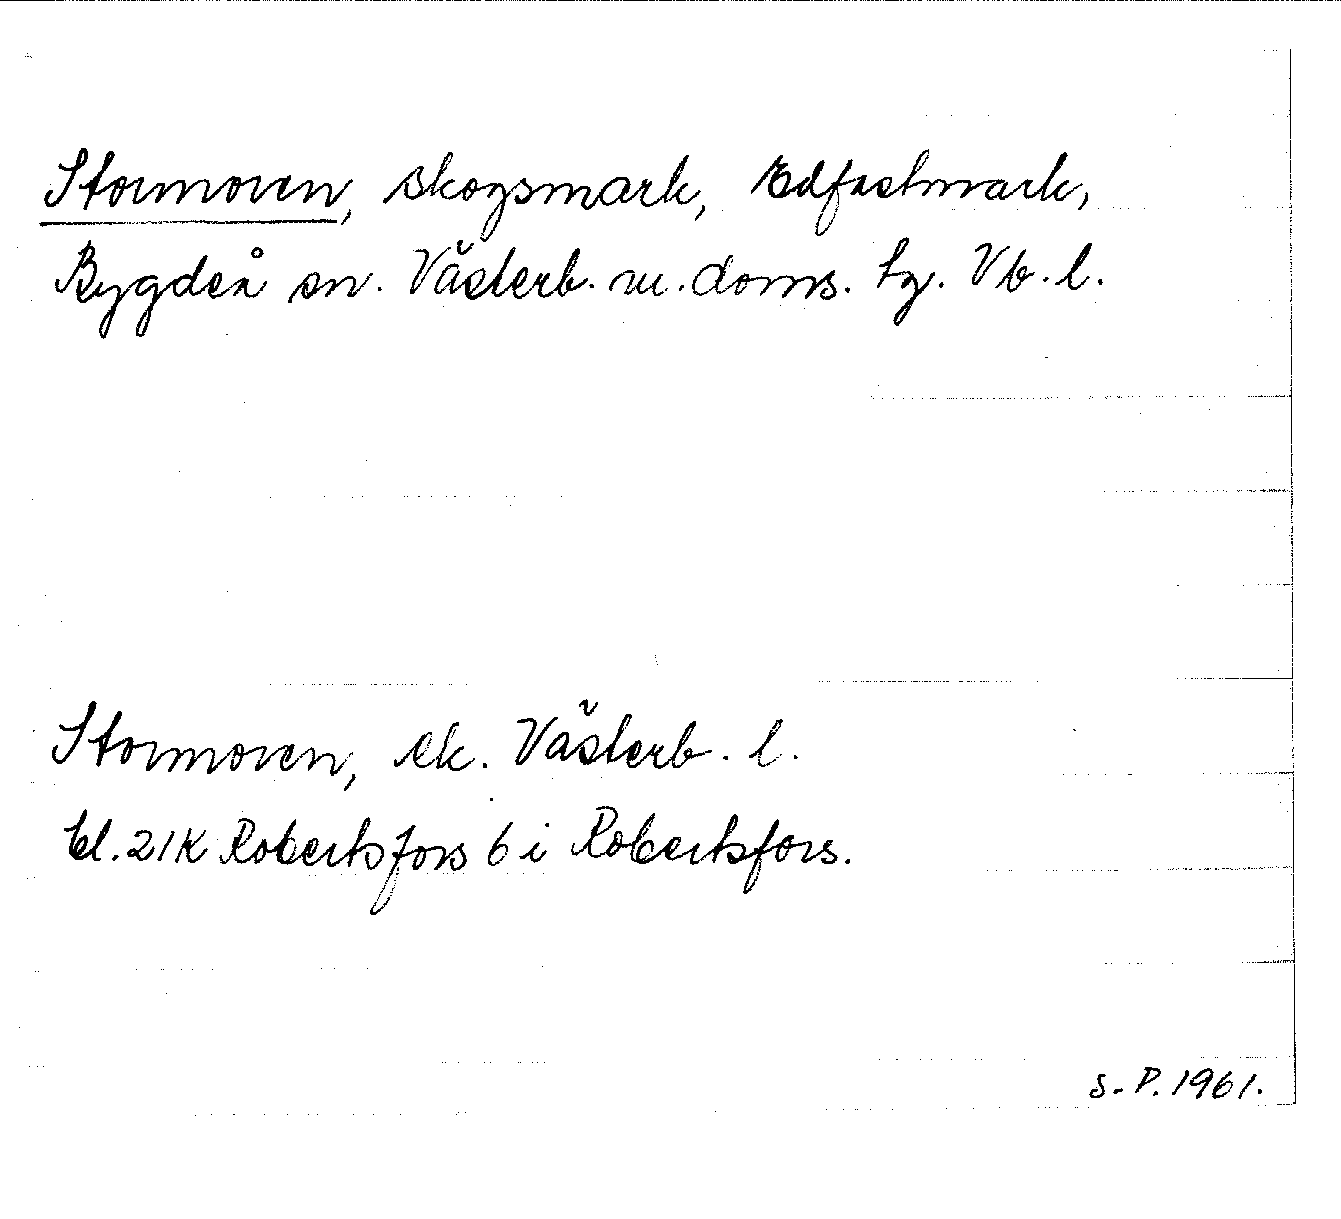 Stormoren, skogsmark, Edfastmark,
Bygdeå sn. Västerb. m. doms. tg. Vb. l.
Stormoren, ek. Västerb. l.
bl. 21K Robertsfors 6 i Robertsfors.
S-P. 1961.